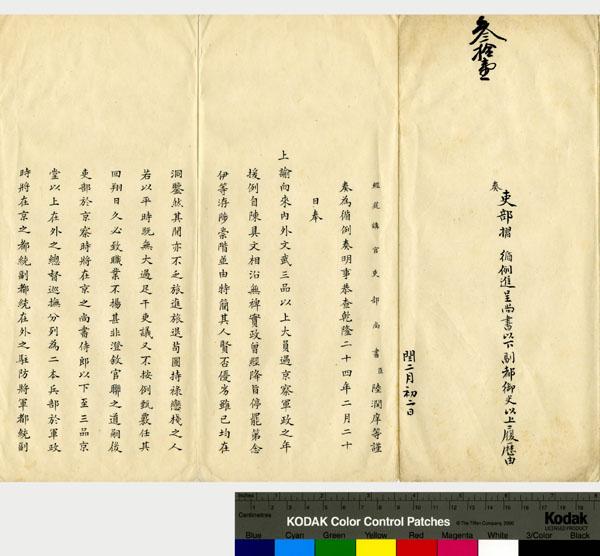 叁拾壹
奏
吏部摺 循例進呈尚書以下副都御史以上履歷由
閏二月初二日
經筵講官吏部尚書臣陸潤庠等謹
奏為循例奏明事恭查乾隆二十四年二月二十
日奉
上諭向來內外文武三品以上大員遇京察軍政之年
援例自陳具文相沿無裨實政曾經降旨停罷第念
伊等洊陟崇階並由特簡其人賢否優劣雖已均在
洞鑒然其間亦不乏旅進旅退苟圖持祿戀棧之人
若以平時既無大過足干吏議又不按例甄覈任其
回翔日久必致職業不揚甚非澄敘官聯之道嗣後
吏部於京察時將在京之尚書侍郎以下至三品京
堂以上在外之總督巡撫分列為二本兵部於軍政
時將在京之都統副都統在外之駐防將軍都統副
Inches
Centimetres
KODAK Color Control Patches
© The Tiffen Company, 2000
Kodak
LICENSED PRODUCT
Blue
Cyan
Green
Yellow
Red
Magenta
White
3/Color
Black